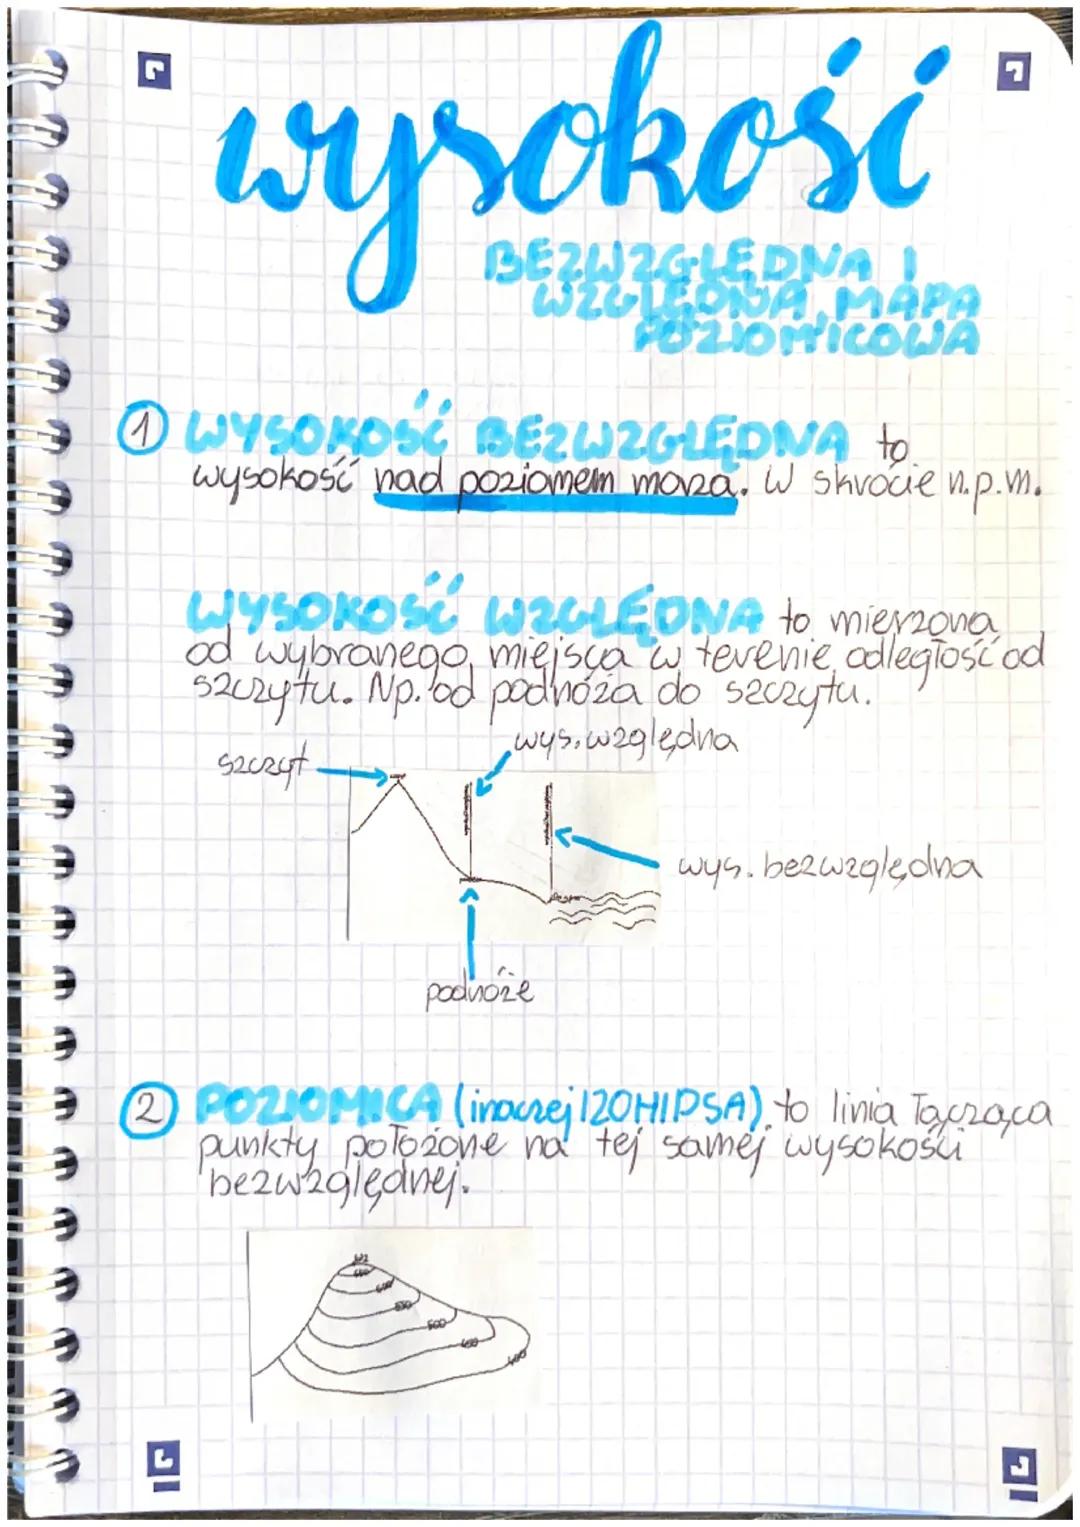 wysokość
BEZWZGLĘDNA I
WZGLĘDNA, MAPA
POZIOMICOWA
1 WYSOKOŚĆ BEZWZGLĘDNA to
wysokość nad poziomem morza. W skrócie n.p.m.
WYSOKOŚĆ WZGLĘDNA to mierzona
od wybranego miejsca w terenie odległość od
szczytu. Np. od podnóża do szczytu.
wys. względna
szczyt
wys. bezwzględna
podnóże
2 POZIOMICA (inaczej IZOHIPSA) to linia łącząca
punkty położone na tej samej wysokości
bezwzględnej.
500